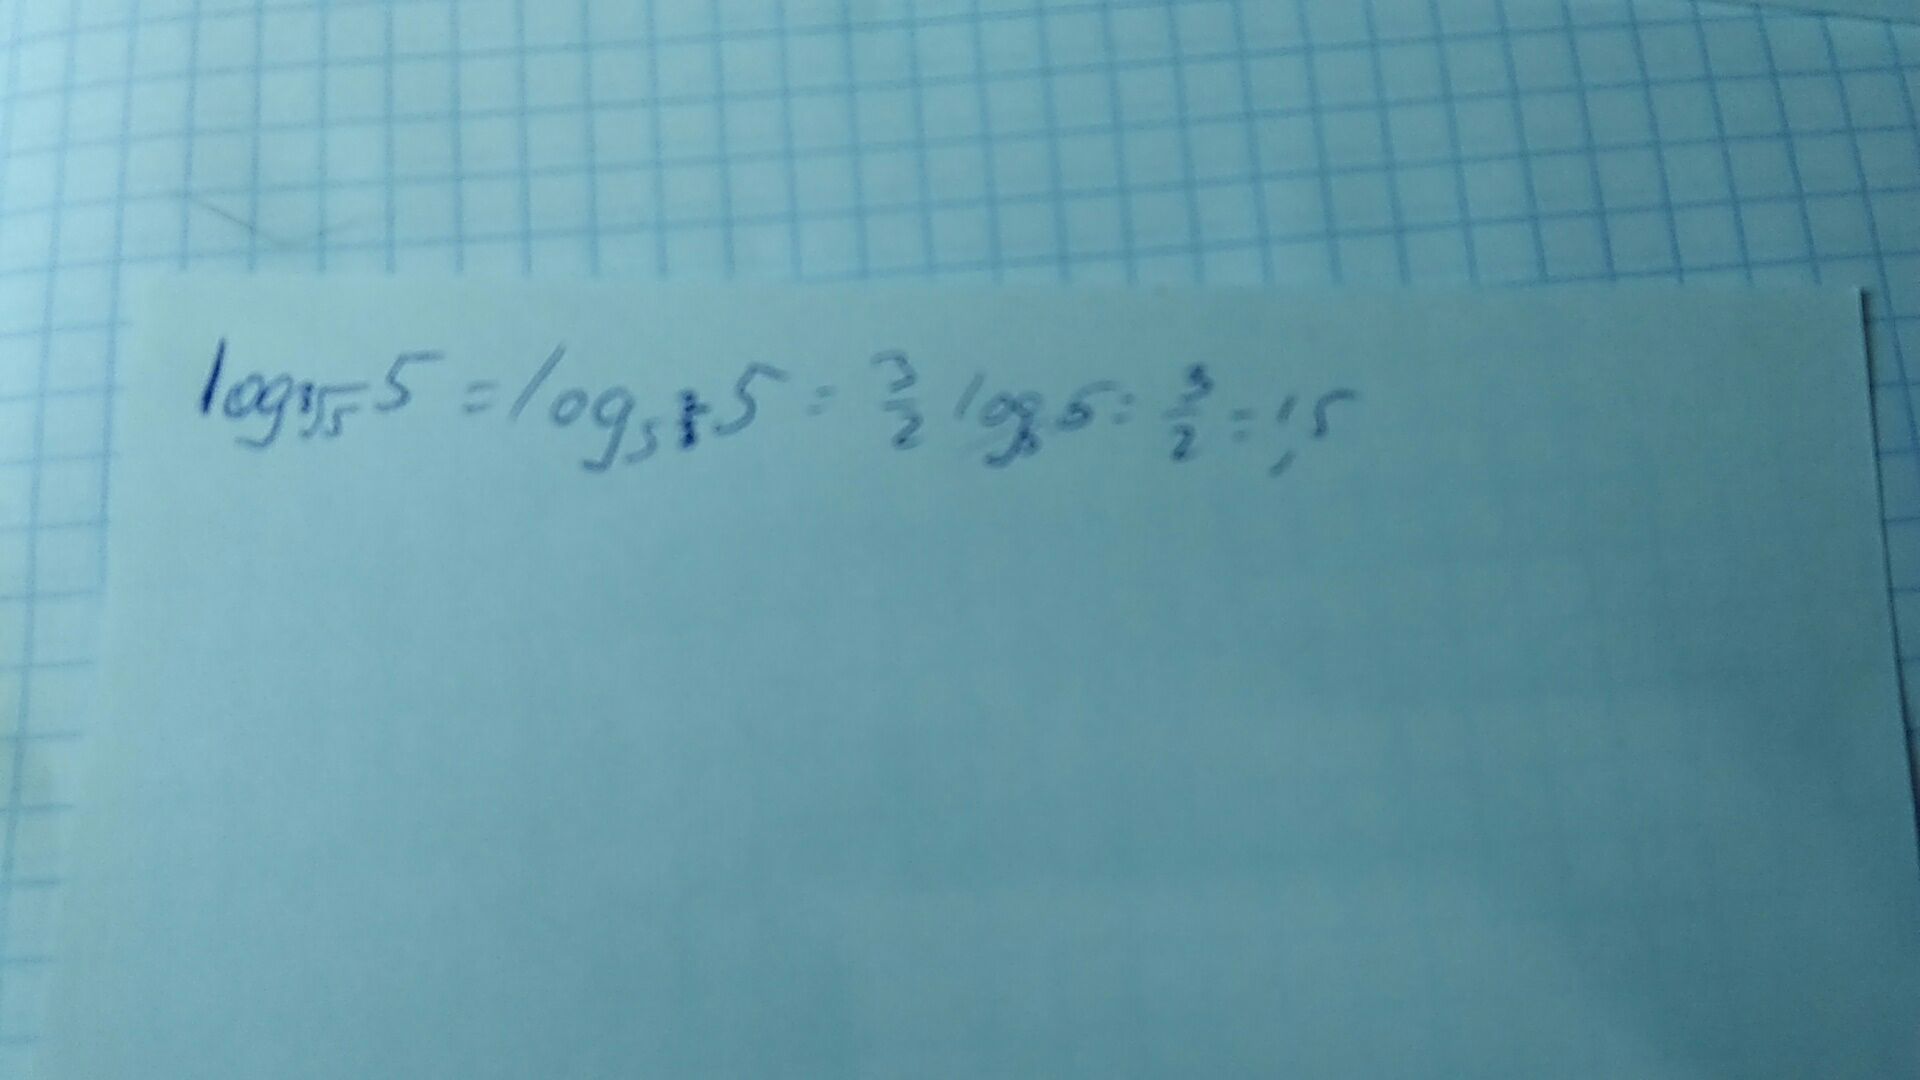 log 5 = log₅ 5 = 3/2 log₅ 5 = 3/2 = 1,5